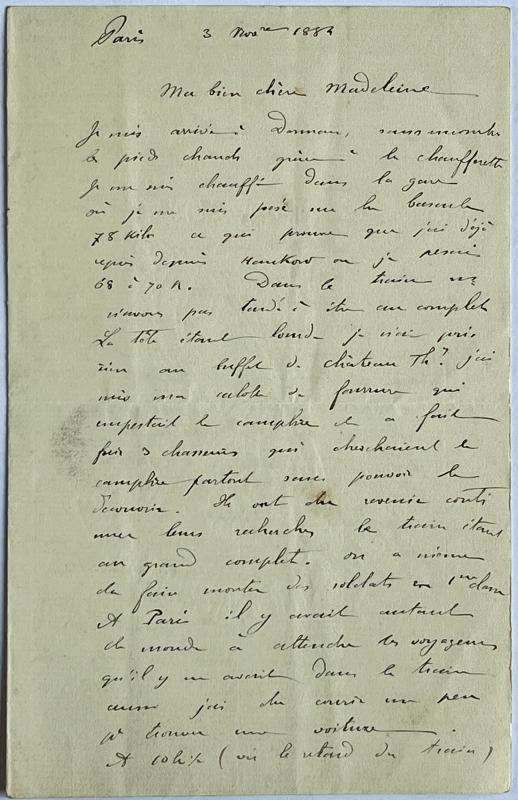 Paris 3 Novre 1884
Ma bien chère Madeleine
Je suis arrivé à Dormans, sans encombre
les pieds chauds grâce à la chaufferette
Je me suis chauffé dans la gare
où je me suis pesé sur la bascule
78 Kilo ce qui prouve que j'ai déjà
repris depuis Hankow où je pesais
68 à 70 K. Dans le train ns
n'avons pas tardé à être au complet
La tête étant lourde je n'ai pris
rien au buffet de château Th? j'ai
mis ma calotte de fourrure qui
empestait le camphre et a fait
fuir 3 chasseurs qui cherchaient le
camphre partout sans pouvoir le
découvrir. Ils ont du revenir conti
nuer leurs recherches le train étant
au grand complet. On a même
du faire monter des soldats en 1re classe
A Paris il y avait autant
de monde à attendre les voyageurs
qu'il y en avait dans le train
aussi j'ai du courir un peu
pr trouver une voiture.
A 10h ½ (vu le retard du train)